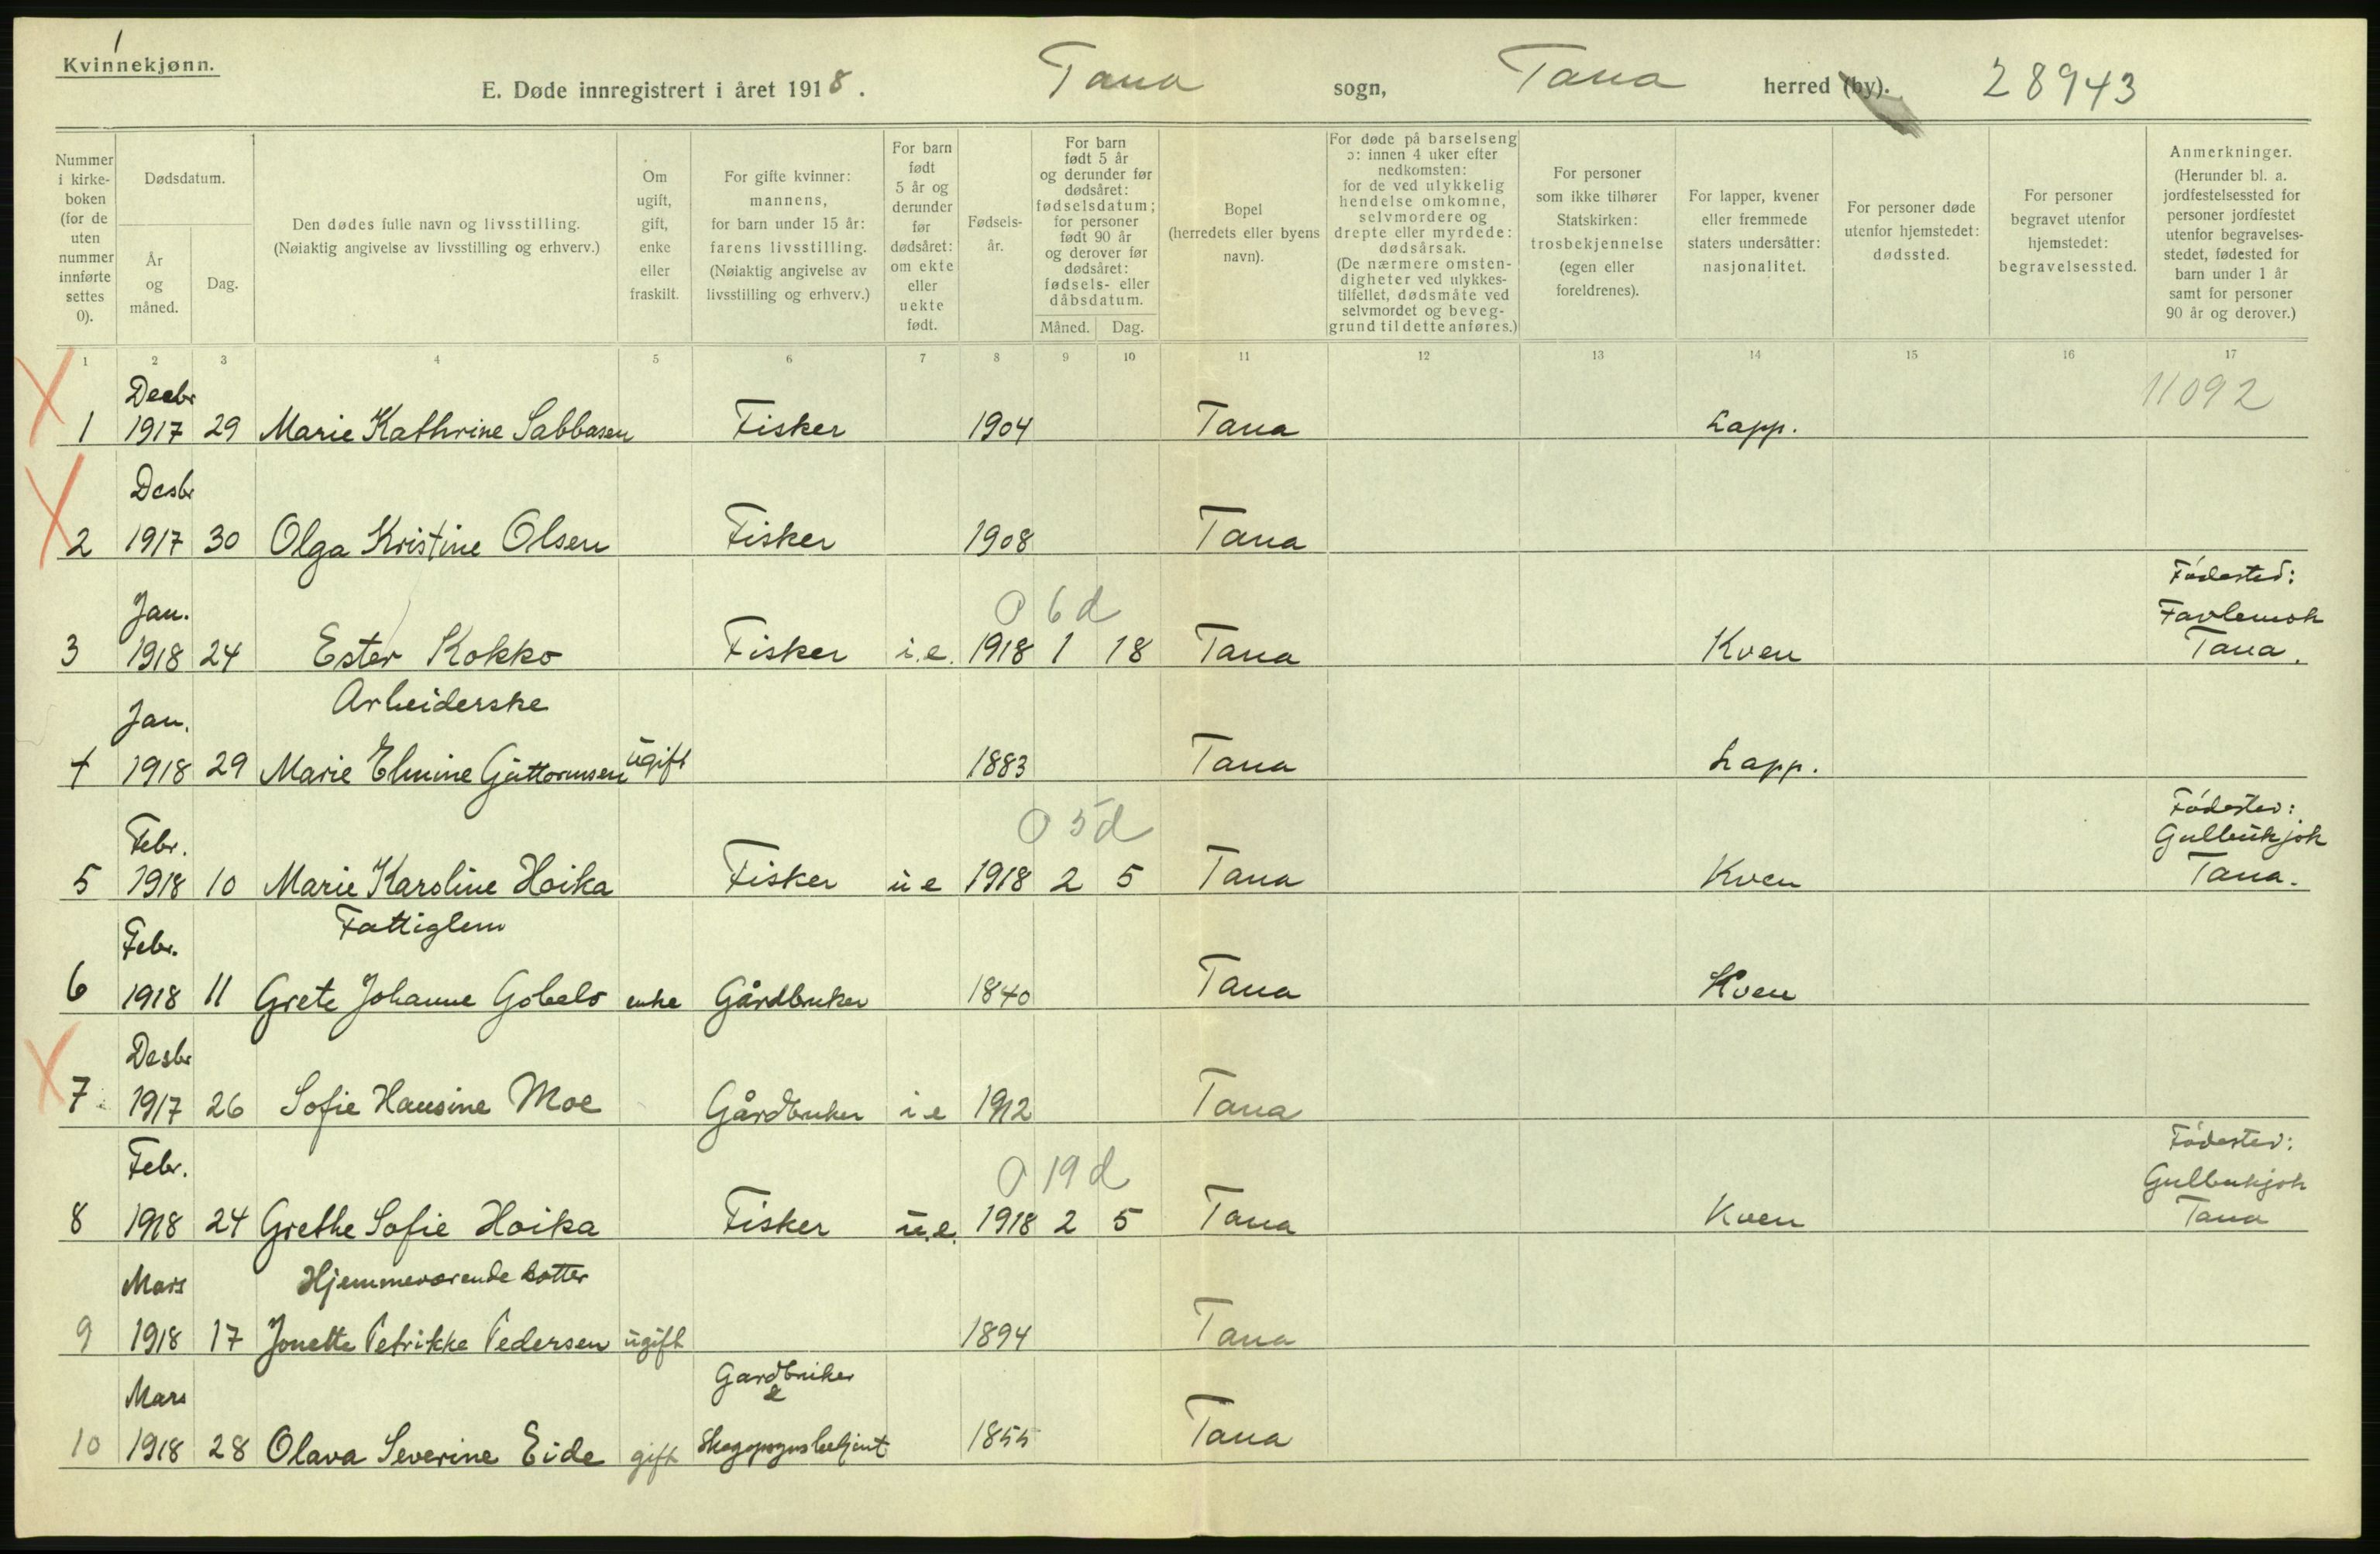 1
Kvinnekjønn.
E. Døde innregistrert i året 1918. Tana sogn, Tana herred (by). 28943
Nummer i kirke-boken (for de uten nummer innførte settes 0).
Dødsdatum.
År og måned.
Dag.
Den dødes fulle navn og livsstilling.
(Nøiaktig angivelse av livsstilling og erhverv.)
Om ugift, gift, enke eller fraskilt.
For gifte kvinner: mannens, for barn under 15 år: farens livsstilling. (Nøiaktig angivelse av livsstilling og erhverv.)
For barn født 5 år og derunder før dødsåret: om ekte eller uekte født.
Fødsels-år.
For barn født 5 år og derunder før dødsåret: fødselsdatum; for personer født 90 år og derover før dødsåret: fødsels- eller dåbsdatum.
Måned. Dag.
Bopel (herredets eller byens navn).
For døde på barselseng ɔ: innen 4 uker efter nedkomsten: for de ved ulykkelig hendelse omkomne, selvmordere og drepte eller myrdede: dødsårsak. (De nærmere omsten-digheter ved ulykkes-tilfellet, dødsmåte ved selvmordet og beveg-grund til dette anføres.)
For personer som ikke tilhører Statskirken: trosbekjennelse (egen eller foreldrenes).
For lapper, kvener eller fremmede staters undersåtter: nasjonalitet.
For personer døde utenfor hjemstedet: dødssted.
For personer begravet utenfor hjemstedet: begravelsessted.
Anmerkninger. (Herunder bl. a. jordfestelsessted for personer jordfestet utenfor begravelses-stedet, fødested for barn under 1 år samt for personer 90 år og derover.)
1 2 3 4 5 6 7 8 9 10 11 12 13 14 15 16 17
Decbr 11092
1 1917 29 Marie Kathrine Sabbasen Fisker 1904 Tana Lapp.
Desbr
2 1917 30 Olga Kristine Olsen Fisker 1908 Tana
Fødested:
Jan. 0 6 d Favlemoh
3 1918 24 Ester Kokko Fisker i.e. 1918 1 18 Tana Kven Tana.
Jan. Arbeiderske
4 1918 29 Marie Elmine Guttormsen ugift 1883 Tana Lapp.
Fødested:
Febr. 0 5 d Gullukjok
5 1918 10 Marie Karoline Hoika Fisker u e 1918 2 5 Tana Kven Tana.
Febr. Fattiglem
6 1918 11 Grete Johanne Gobelo enke Gårdbruker 1840 Tana Kven
Desbr
7 1917 26 Sofie Hansine Moe Gårdbruker i e 1912 Tana
Fødested:
Febr. 0 19 d Gullukjok
8 1918 24 Grethe Sofie Hoika Fisker u.e. 1918 2 5 Tana Kven Tana
Mars Hjemmeværende datter
9 1918 17 Jonette Petrikke Pedersen ugift 1894 Tana
Mars Gardbruker &
10 1918 28 Olava Severine Eide gift Skogopsynsbetjent 1855 Tana